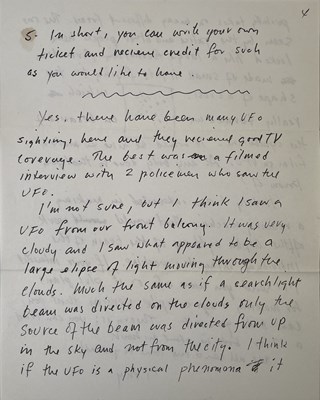 4
5. In short, you can write your own
ticket and recieve credit for such
as you would like to have.
Yes, there have been many UFO
sightings here and they recieved good TV
coverage. The best was a filmed
interview with 2 policemen who saw the
UFO.
I'm not sure, but I think I saw a
UFO from our front balcony. It was very
cloudy and I saw what appeared to be a
large elipse of light moving through the
clouds. Much the same as if a searchlight
beam was directed on the clouds only the
source of the beam was directed from up
in the sky and not from the city. I think
if the UFO is a physical phenomona it